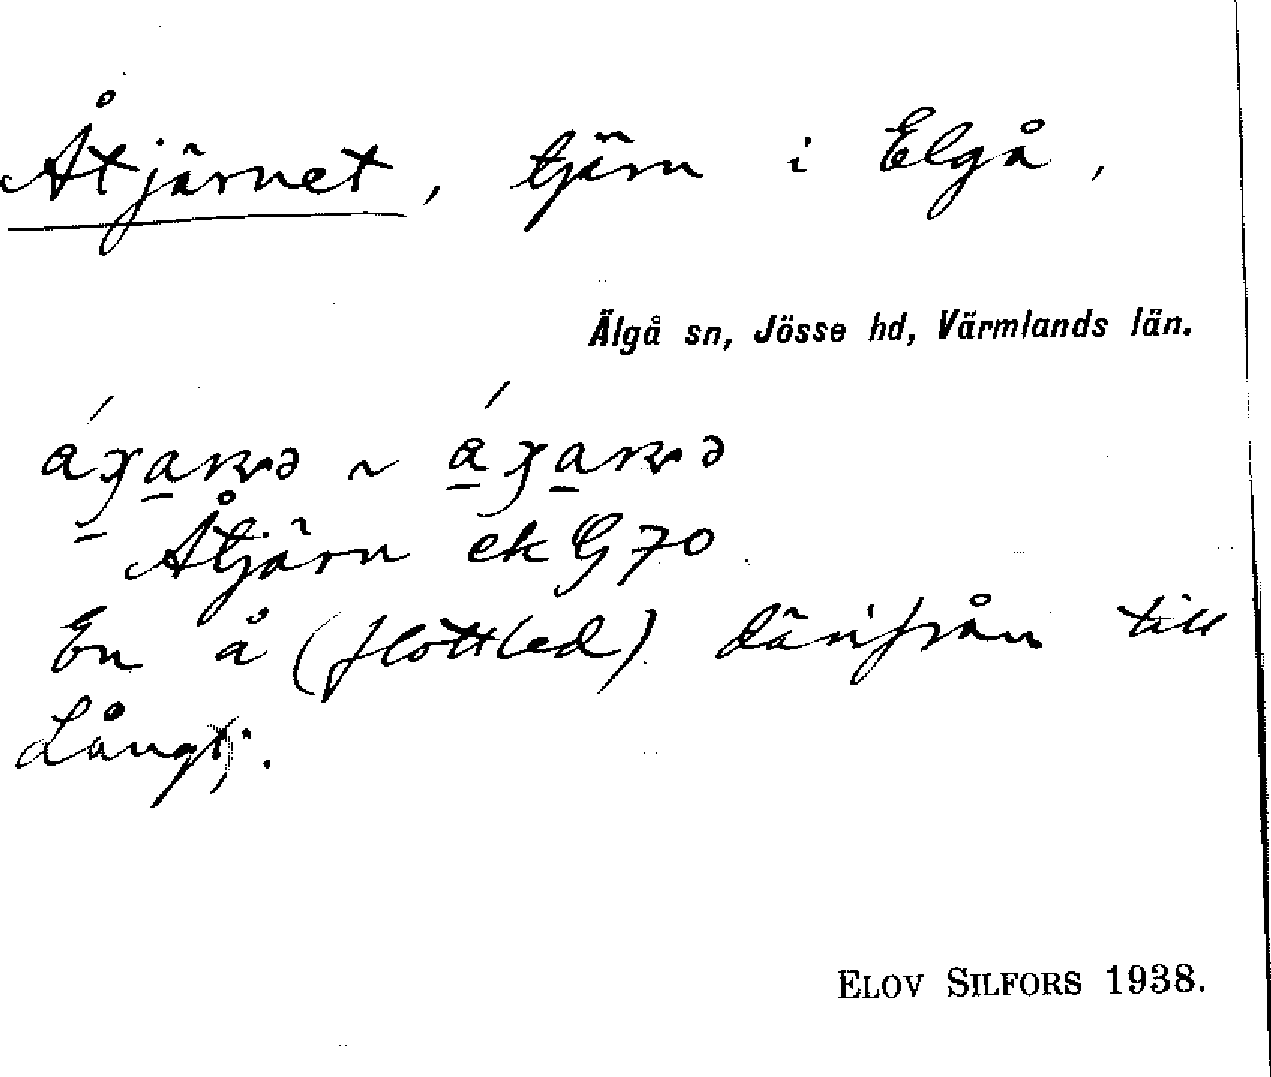 Åtjärnet, tjärn i Elgå,
Älgå sn, Jösse hd, Värmlands län.
Åtjärn ek G 70
En å (flottled) därifrån till
Långtj.
ELOV SILFORS 1938.